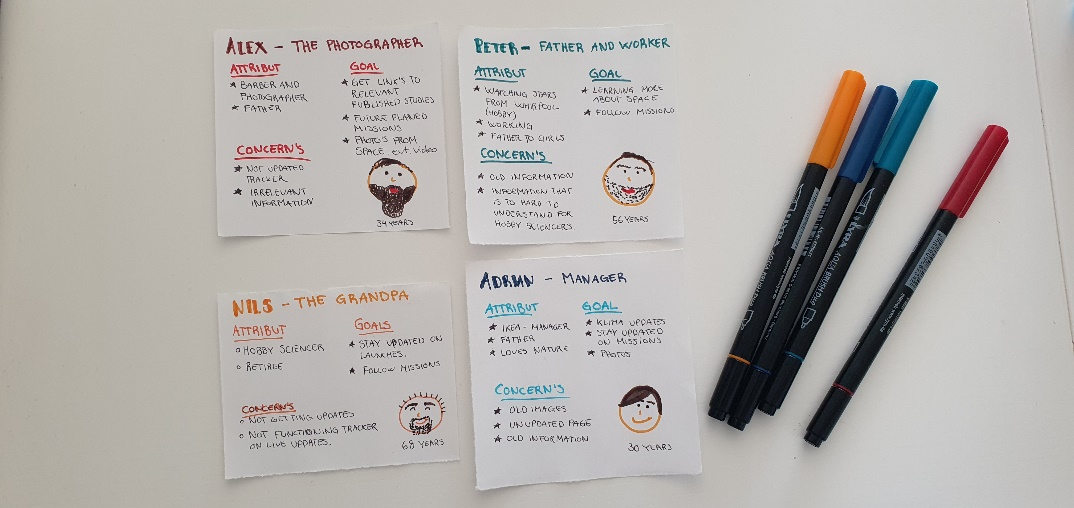 ALEX - THE PHOTOGRAPHER
ATTRIBUT
★ BARBER AND
PHOTOGRAPHER
★ FATHER
GOAL
★ GET LINK'S TO
RELEVANT
PUBLISHED STUDIES
★ FUTURE PLANED
MISSIONS
★ PHOTO'S FROM
SPACE ect video
CONCERN'S
★ NOT UPDATED
TRACKER
★ IRRELEVANT
INFORMATION
34 YEARS
PETER - FATHER AND WORKER
ATTRIBUT
★ WATCHING STARS
FROM
(HOBBY)
★ WORKING
★ FATHER TO CHRIS
GOAL
★ LEARNING MORE
ABOUT SPACE
★ FOLLOW MISSIONS
CONCERN'S
★ OLD INFORMATION
★ INFORMATION THAT
IS TO HARD TO
UNDERSTAND FOR
HOBBY SCIENCERS
56 YEARS
NILS - THE GRANDPA
ATTRIBUT
○ HOBBY SCIENCER
○ RETIRLE
GOALS
★ STAY UPDATED ON
LAUNCHES.
★ FOLLOW MISSIONS
CONCERN'S
○ NOT GETTING UPDATES
○ NOT FUNCTIONING TRACKER
ON LIVE UPDATES.
68 YEARS
ADRIAN - MANAGER
ATTRIBUT
★ IKEA - MANAGER
★ FATHER
★ LOVES NATURE
GOAL
★ KLIMA UPDATES
★ STAY UPDATED
ON MISSIONS
★ PHOTOS
CONCERN'S
★ OLD IMAGES
★ UNUPDATED PAGE
★ OLD INFORMATION
30 YEARS